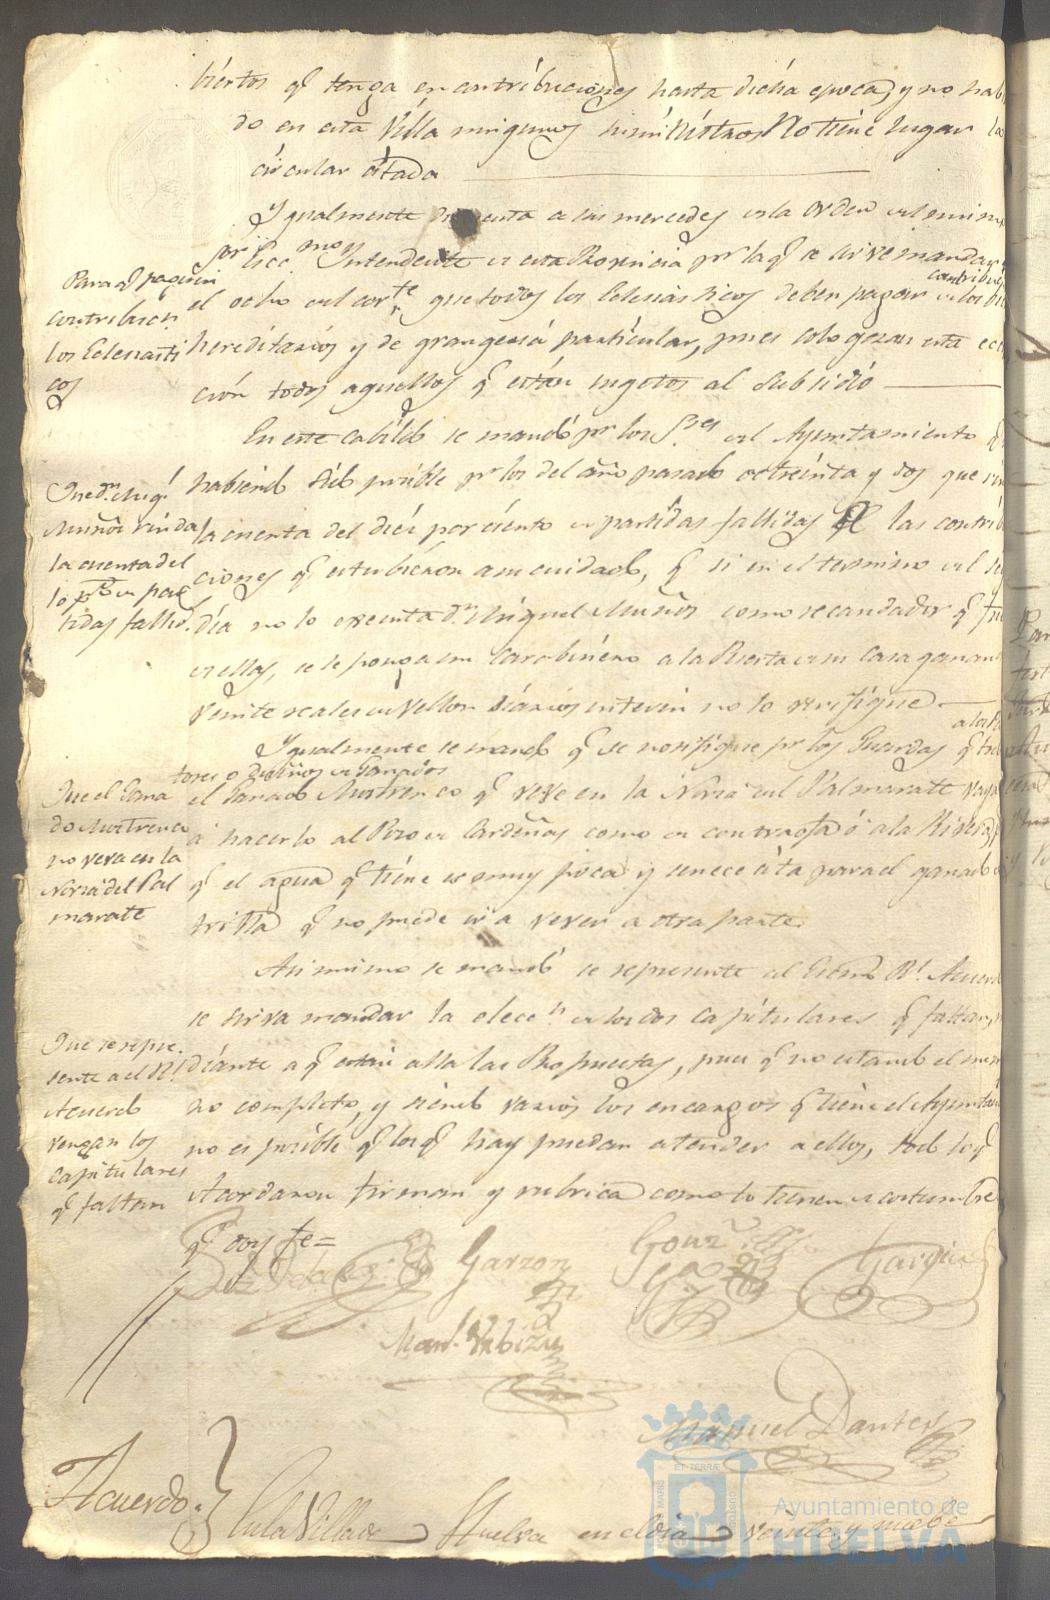 biertos q.e tenga en contribuciones hasta dicha epoca, y no habi
do en esta Villa ningunos suministros No tiene lugar la
circular citada
Ygualmente di cuenta a sus mercedes de la orden del mismo
por
Ecc.mo Yntendente de esta Provincia p.r la q.e se sirve mandar
contribuc.n
el ocho del cor.te que todos los Eclesiasticos deben pagar de los bie
hereditarios y de grangeria particular, pues solo gozan esta ec
ción todos aquellos q.e están sugetos al Subsidio
Para q.e paguen
contribucion
los Eclesiasti
cos
En este cabildo se mandó p.r los S.res del Ayuntamiento q.e
habiendo sido posible p.r los del año pasado de treinta y dos que rin
la cuenta del diez por ciento de partidas fallidas de las contrib
ciones q.e estubieron a su cuidado, q.e si en el termino del
día no lo executa d.n Miguel Muñoz como recaudador q.e fue
de ellas, se le ponga un Carabinero a la Puerta de su Casa ganan
veinte reales de Vellon diarios interin no lo verifique
Que d.n Mig.l
Muñoz rinda
la cuenta del
10 p% de par
tidas fallid.s
Ygualmente se mandó q.e se notifique p.r los Guardas
a los Pas
tores o dueños de Ganados
q.e
el Ganado Mostrenco q.e veve en la Noria del Palmarate vaya
á hacerlo al Pozo de Cardeñas como de contraofa ó a la Rivera, p
q.e el agua q.e tiene es muy poca y se necesita para el ganado d
trilla q.e no puede ir a vever a otra parte.
Que el Gana
do Mostrenco
no veva en la
Noria del Pal
marate
Asi mismo se mandó se represente al Ecsmo R.l Acuerdo
se sirva mandar la elecc.n de los dos capitulares q.e faltan,
diante a q.e están alla las Propuestas, pues q.e no estando el
no completo, y siendo varios los encargos q.e tiene el Ayuntam
no es posible q.e los q.e hay puedan atender a ellos, todo lo q.e
Acordaron firman y rubrica como lo tienen de costumbre
q.e doy fe =
Que se repre
sente a el R.l
Acuerdo
vengan los
capitulares
q.e faltan
Garzon
Gonz.
Garzia
Man.l Urbizu
Manuel Dantes
Acuerdo. En la Villa de Huelva en el dia veinte y nuebe
MARIS ET TERRÆ CUSTOS
Ayuntamiento de
HUELVA